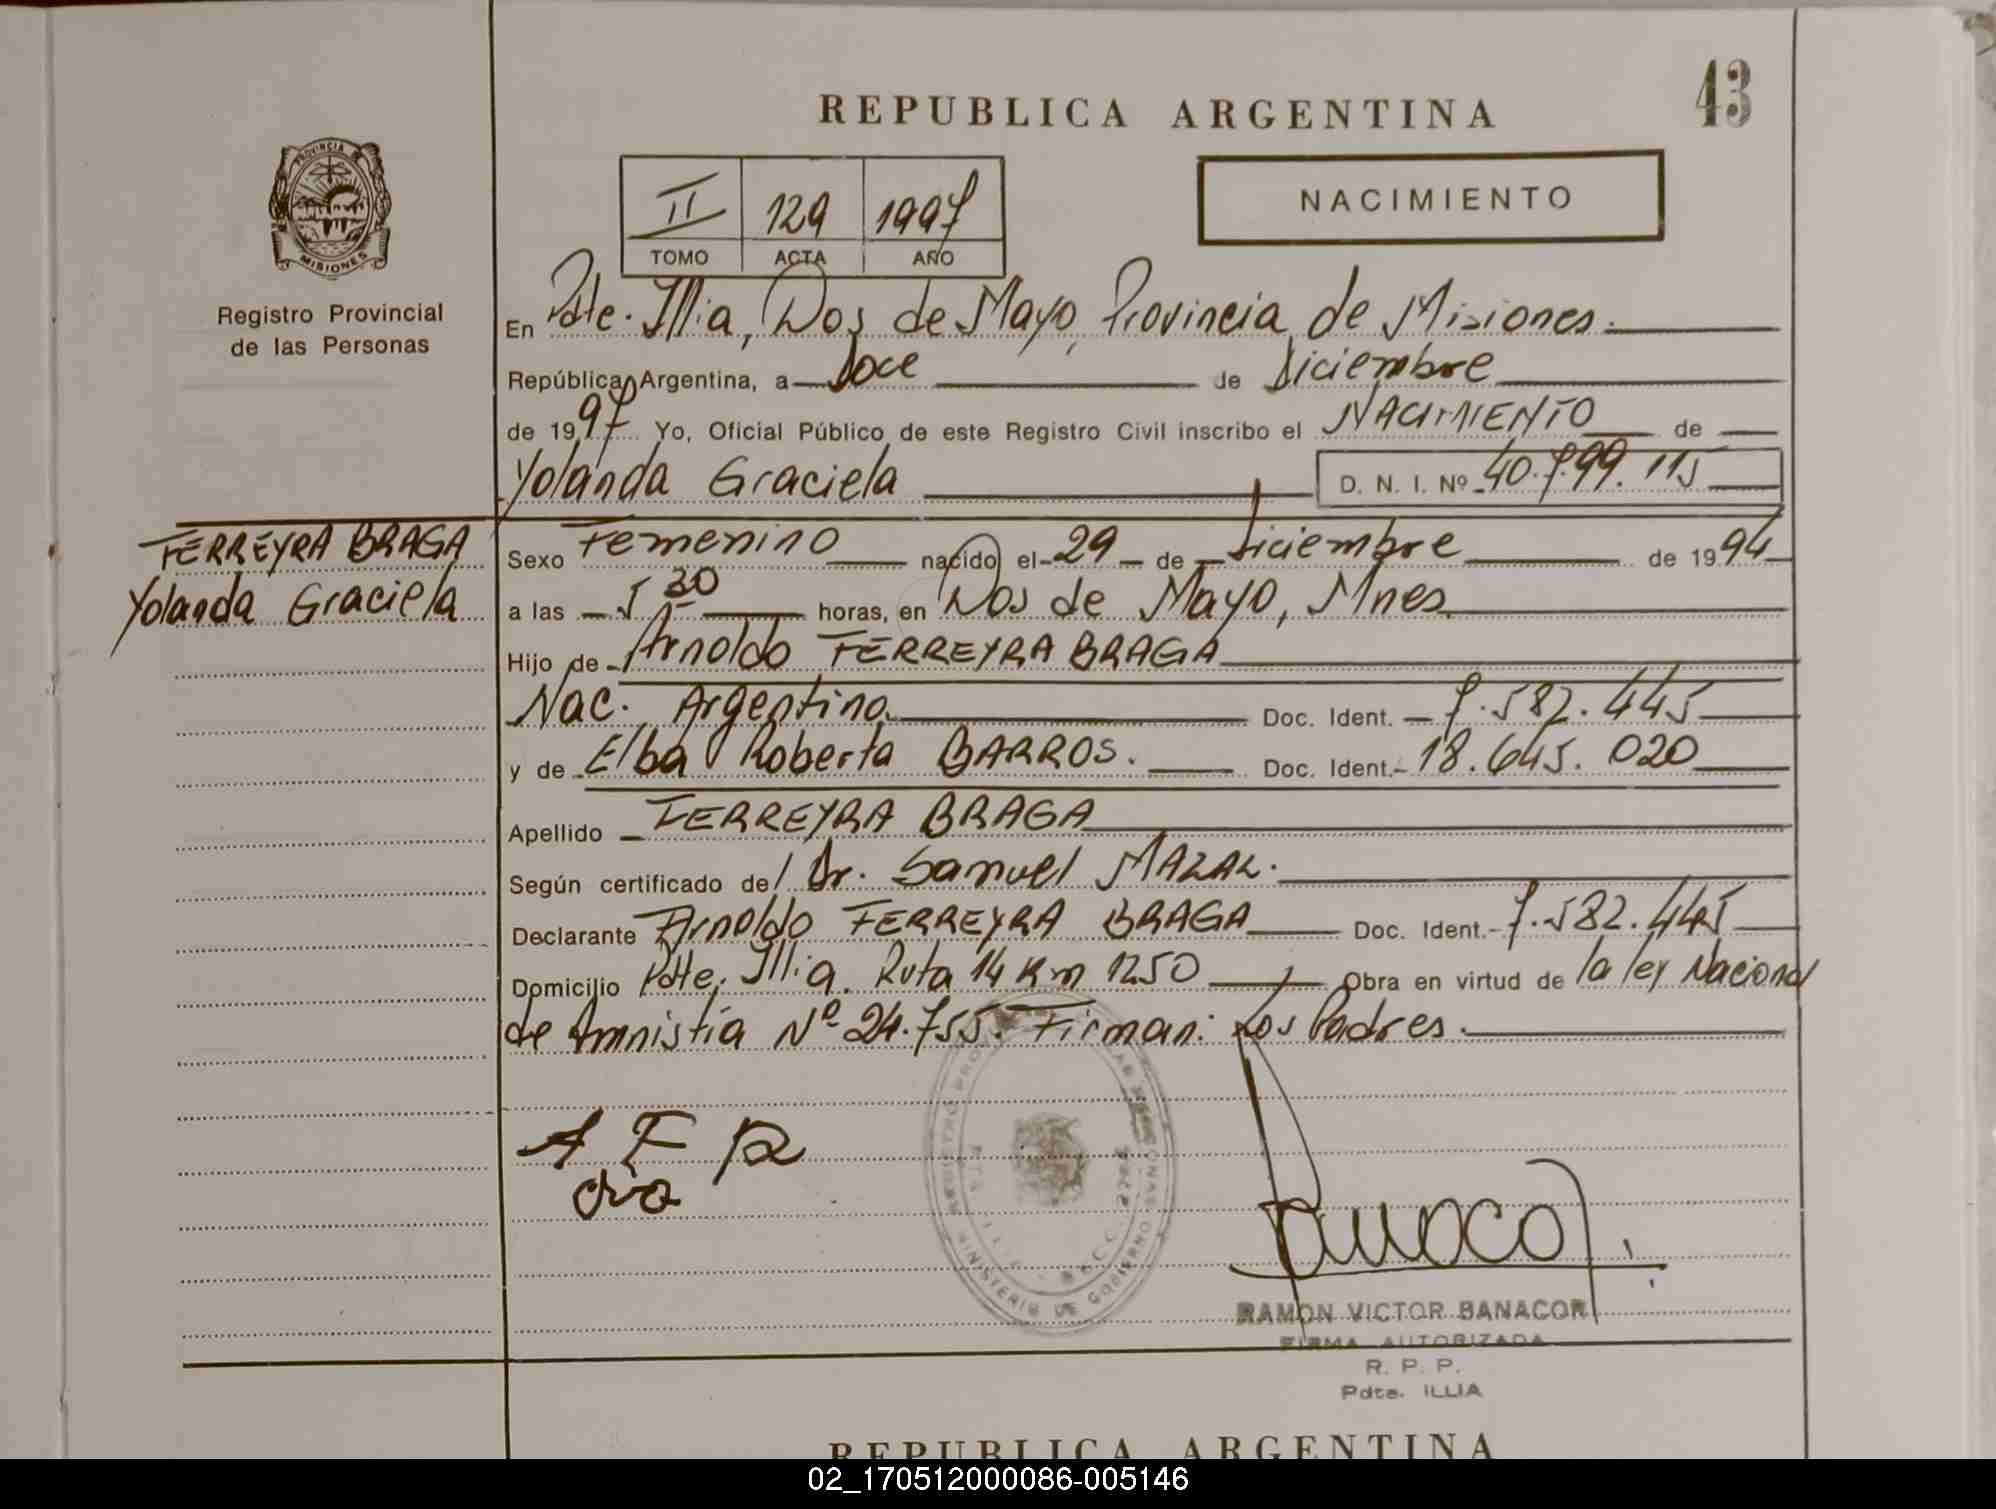 43
REPUBLICA ARGENTINA
NACIMIENTO
II 129 1997
TOMO ACTA AÑO
PROVINCIA DE
MISIONES
Registro Provincial
de las Personas
En Pdte. Illia, Dos de Mayo, Provincia de Misiones.
República Argentina, a Doce de Diciembre
de 1997 Yo, Oficial Público de este Registro Civil inscribo el NACIMIENTO de
Yolanda Graciela D. N. I. Nº 40.799.115
FERREYRA BRAGA
Yolanda Graciela
Sexo Femenino nacido el 29 de diciembre de 1994
a las 5 30 horas, en Dos de Mayo, Mnes
Hijo de Arnoldo FERREYRA BRAGA
Nac. Argentina Doc. Ident. 7.582.445
y de Elba Roberta BARROS. Doc. Ident. 18.645.020
Apellido FERREYRA BRAGA
Según certificado del Dr. Samuel MAZAL.
Declarante Arnoldo FERREYRA BRAGA Doc. Ident. 7.582.445
Domicilio Pdte. Illia. Ruta 14 Km 1250 Obra en virtud de la ley Nacional
de Amnistía Nº 24.755. Firman: Los Padres.
A F B
MINISTERIO DE GOBIERNO
RAMON VICTOR BANACOR
FIRMA AUTORIZADA
R. P. P.
Pdte. ILLIA
REPUBLICA ARGENTINA
02_170512000086-005146